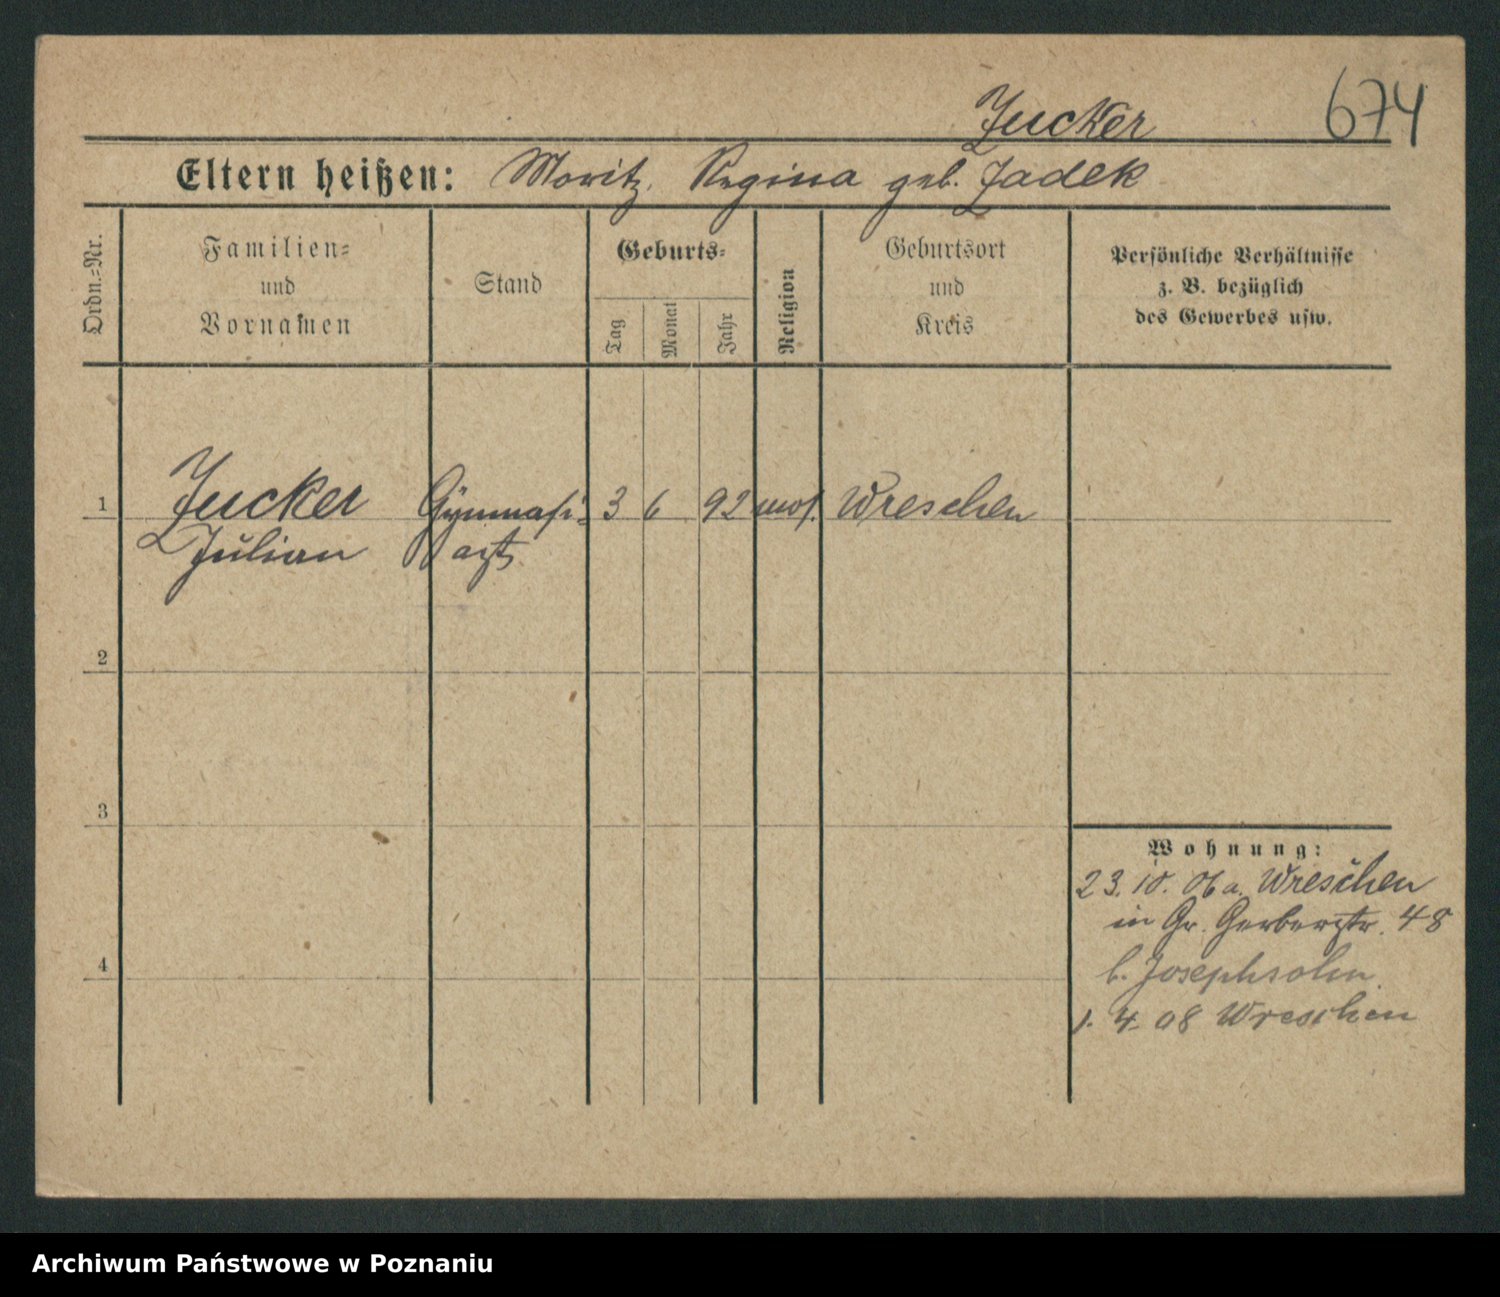 Zucker
674
Eltern heißen: Moritz, Regina geb. Zadek
Ordn.-Nr.
Familien-
und
Vornamen
Stand
Geburts-
Tag
Monat
Jahr
Religion
Geburtsort
und
Kreis
Persönliche Verhältnisse
z. B. bezüglich
des Gewerbes usw.
1
Zucker Gymnasi- 3 6 92 mos. Wreschen
Julian ast
2
3
4
Wohnung:
23. 10. 06 a. Wreschen
in Gr. Gerberstr. 48
b. Josephsohn
1. 4. 08 Wreschen
Archiwum Państwowe w Poznaniu